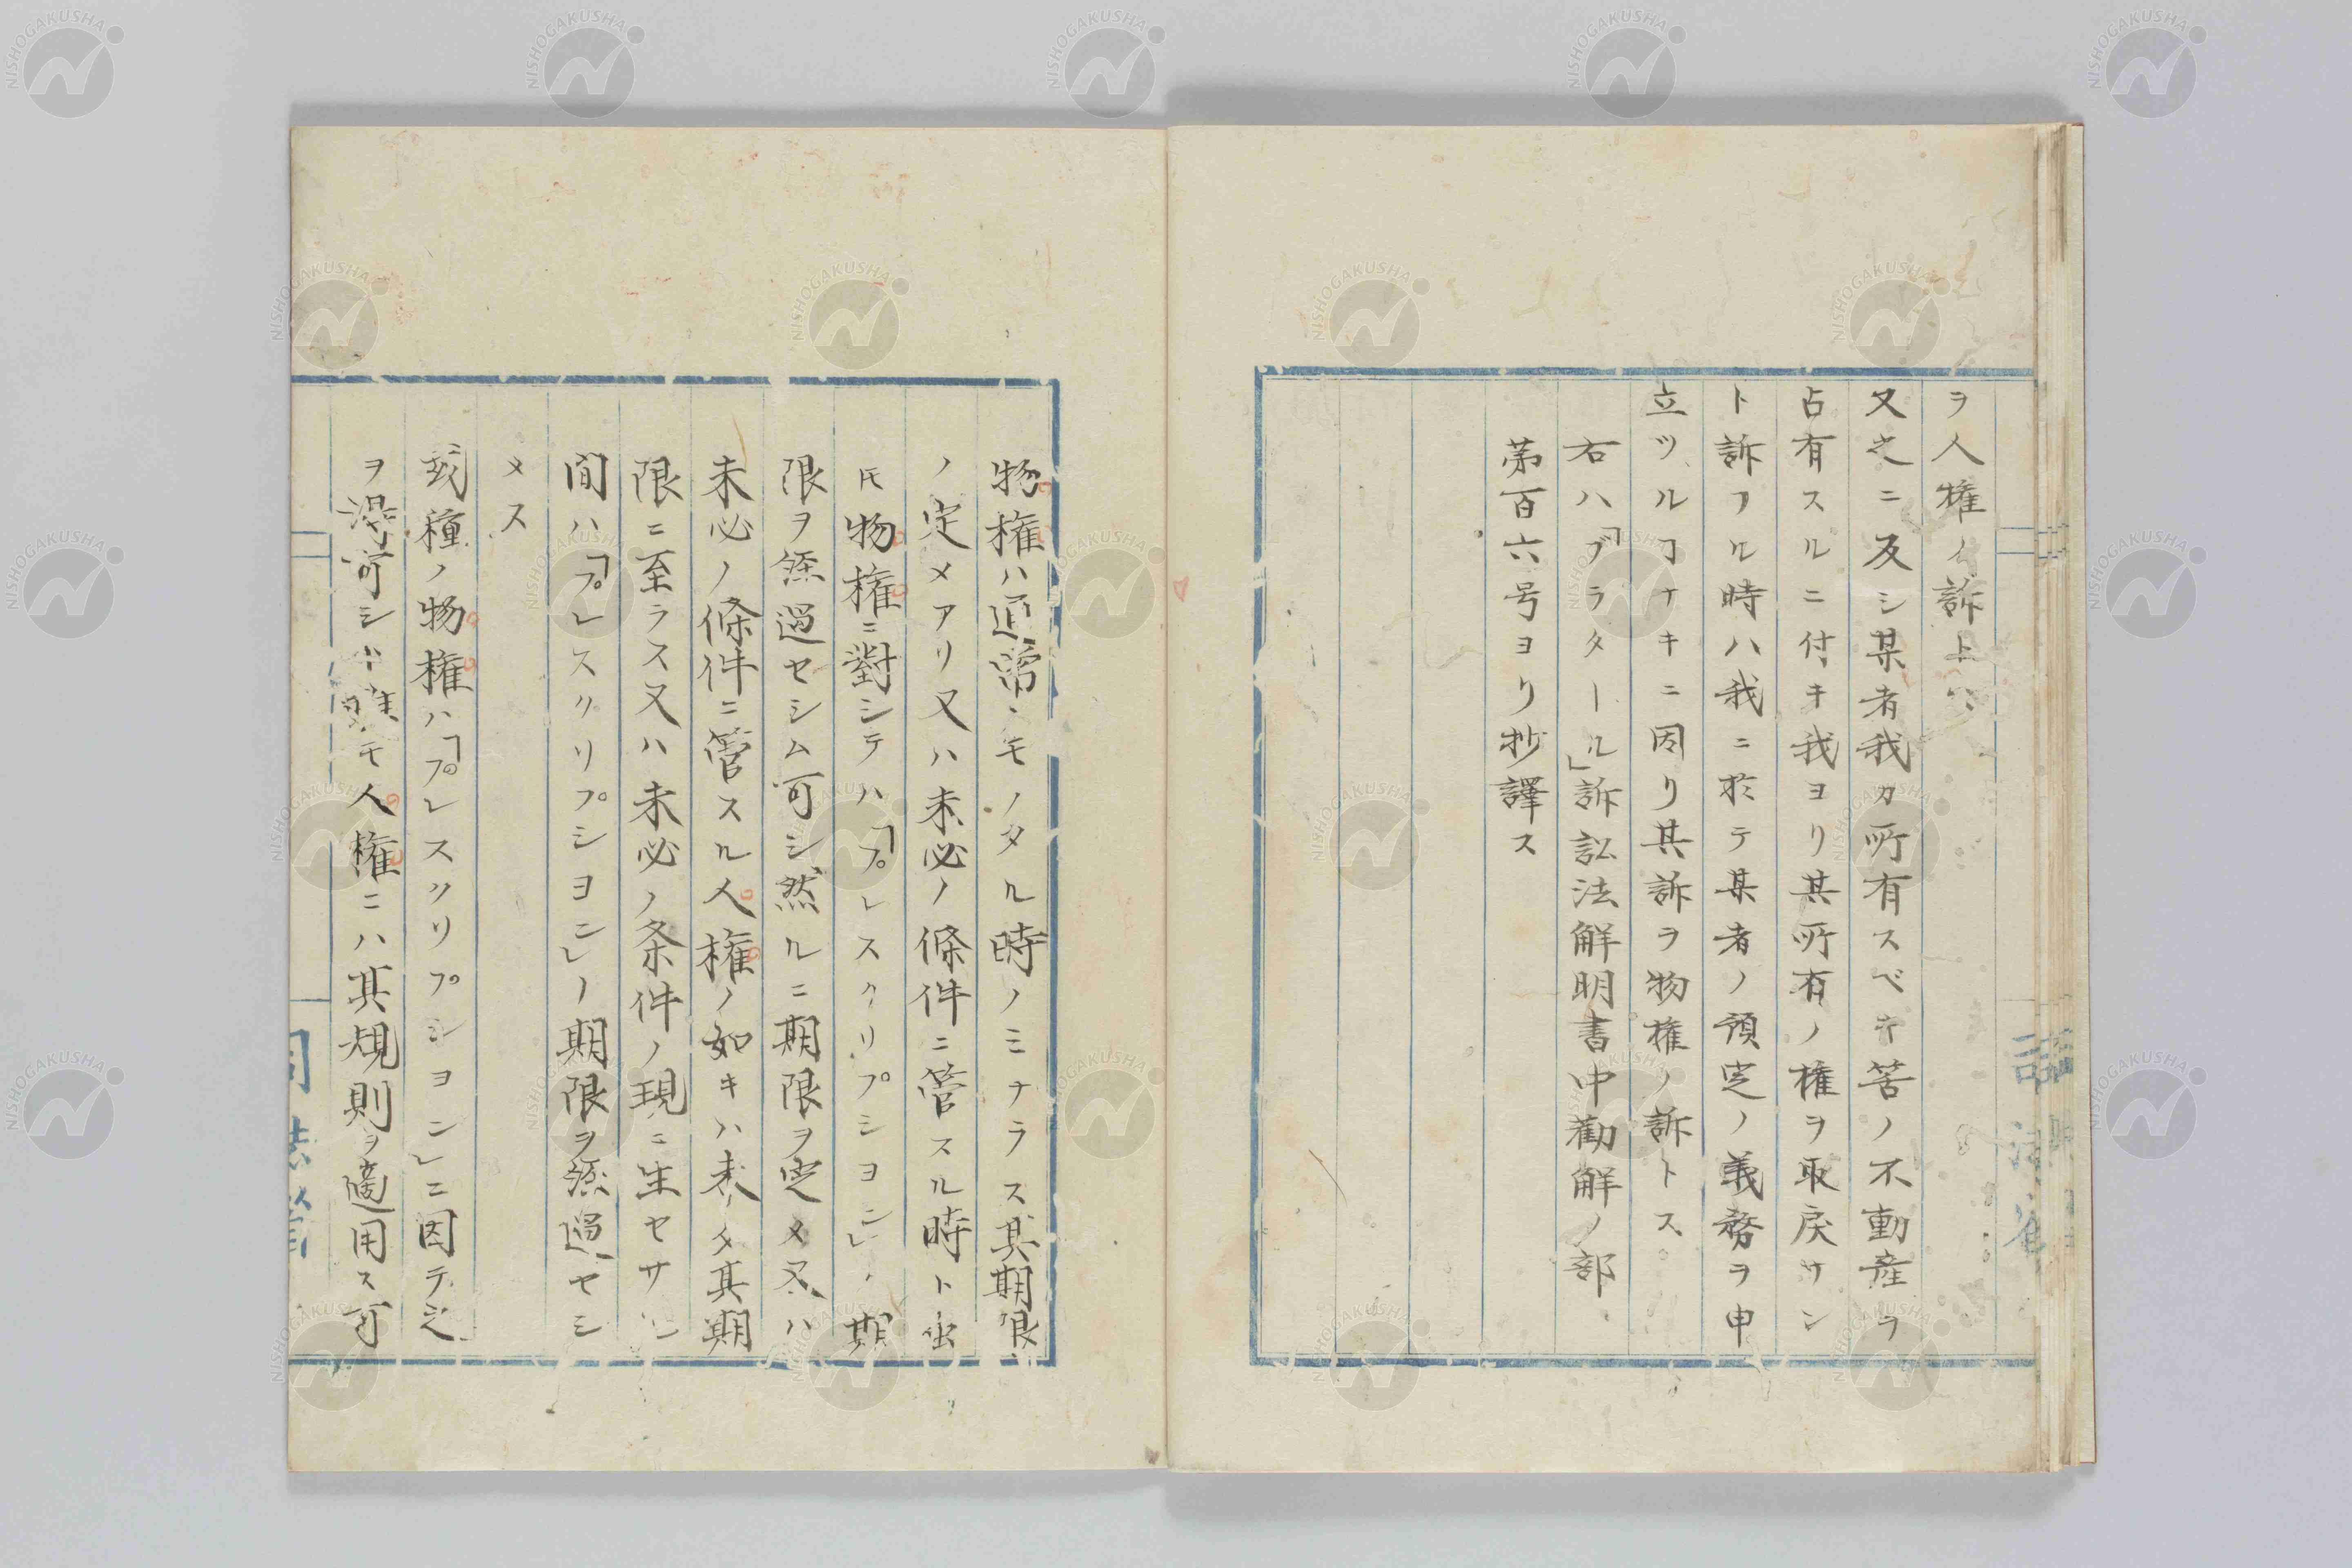 ヲ人権ノ訴トハ
又之ニ及シ某者我カ所有スベキ筈ノ不動産ヲ
占有スルニ付キ我ヨリ其所有ノ権ヲ取戻サン
ト訴フル時ハ我ニ於テ某者ノ預定ノ義務ヲ申
立ツルヿナキニ因リ其訴ヲ物権ノ訴トス
右ハ「ブラタール」訴訟法解明書中勧解ノ部
第百六号ヨリ抄譯ス
物権ハ通常ノモノタル時ノミナラス其期限
ノ定メアリ又ハ未必ノ條件ニ管スル時ト虫
𪜈物権ニ對シテハ「プレスクリプシヨン」ノ期
限ヲ經過セシム可シ然ルニ期限ヲ定メ又ハ
未必ノ條件ニ管スル人権ノ如キハ未タ其期
限ニ至ラス又ハ未必ノ条件ノ現ニ生セサル
間ハ「プレスクリプシヨン」ノ期限ヲ經過セシ
メス
或種ノ物権ハ「プレスクリプシヨン」ニ因テ之
ヲ得可シト雖モ人権ニハ其規則ヲ適用ス可